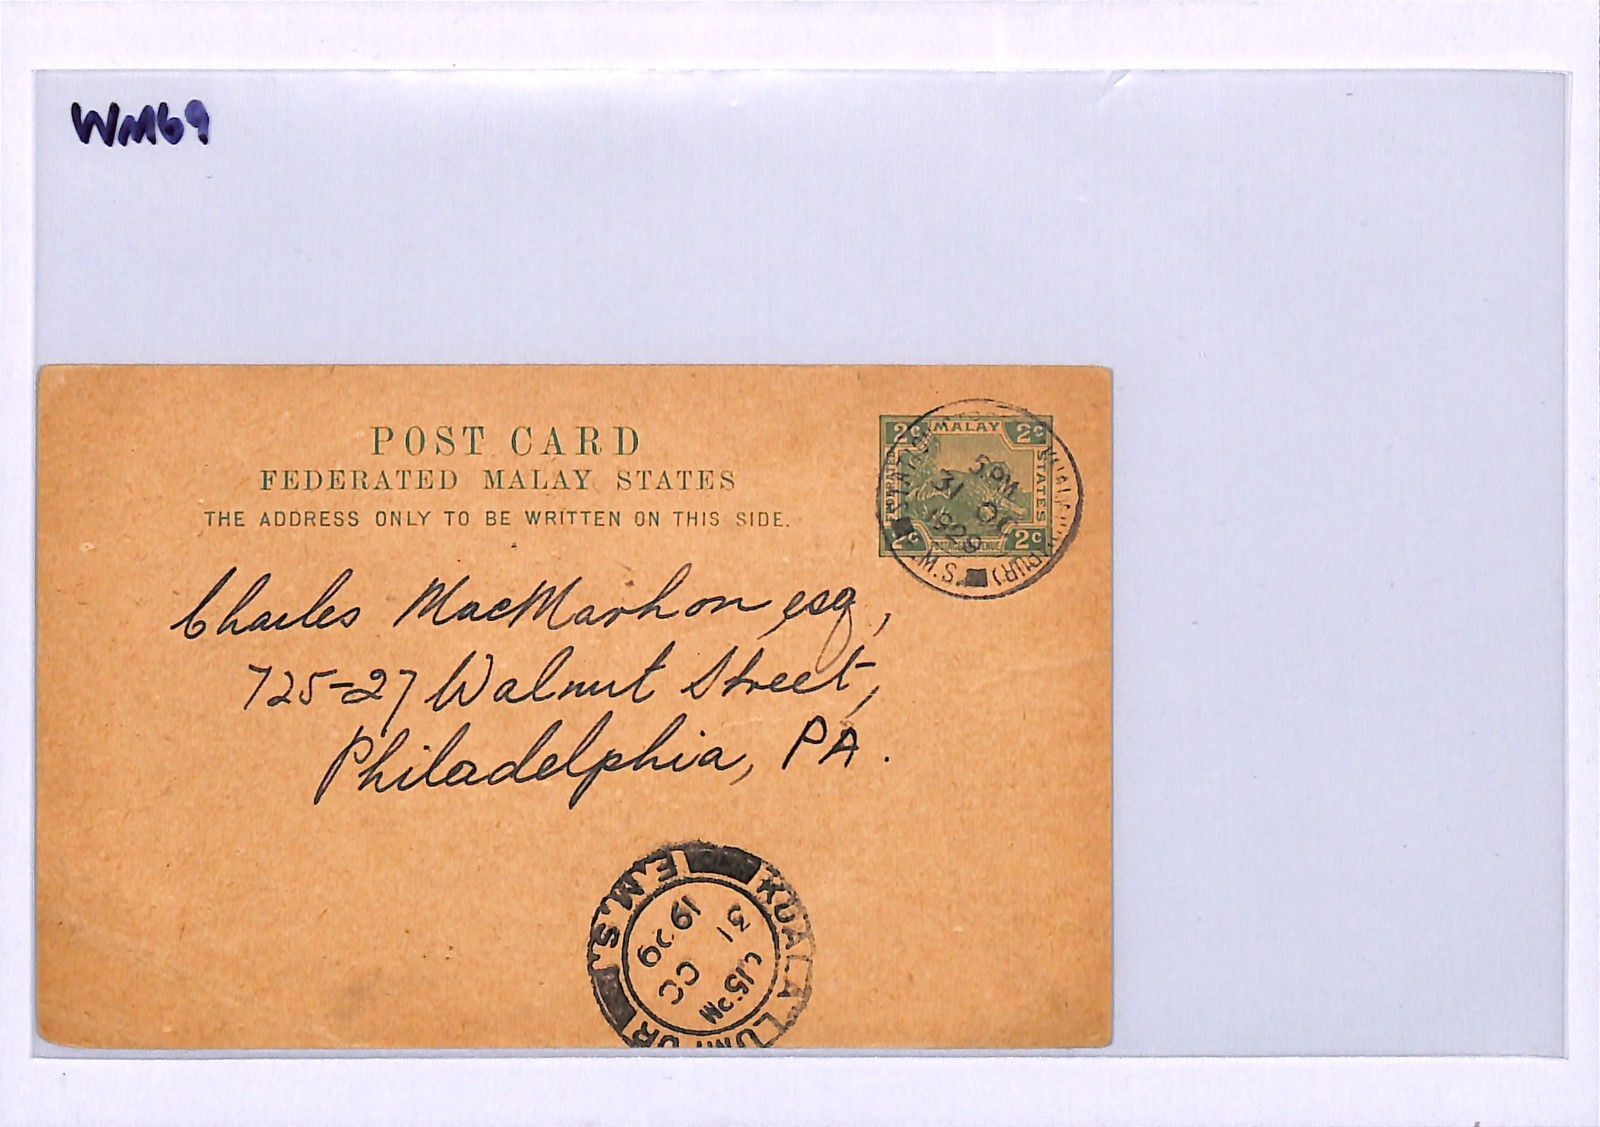 WM69
POST CARD
FEDERATED MALAY STATES
THE ADDRESS ONLY TO BE WRITTEN ON THIS SIDE.
2c MALAY 2c
FEDERATED
STATES
2c 2c
5 PM
31 OC
1929
Charles MacMarhon esq,
725-27 Walnut Street,
Philadelphia, PA.
KUALA LUMPUR
F.M.S.
4.15 PM
31 OC
1929